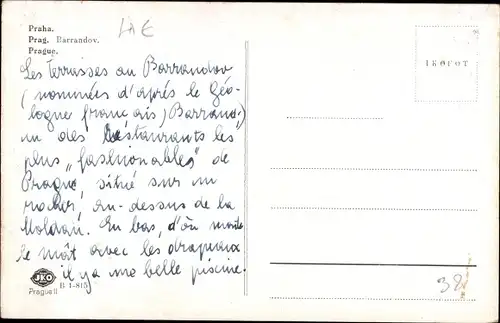 Praha.
Prag. Barrandov.
Prague.
IKOFOT
Les Terrasses au Barrandov
(nommées d'après le Géo-
logue français) Barrand,
un des Restaurants les
plus "fashionables" de
Prague, situé sur un
rocher, au-dessus de la
Moldau. En bas, d'où monte
le mât avec les drapeaux
il y a une belle piscine.
JKO
Prague II
B 1-815